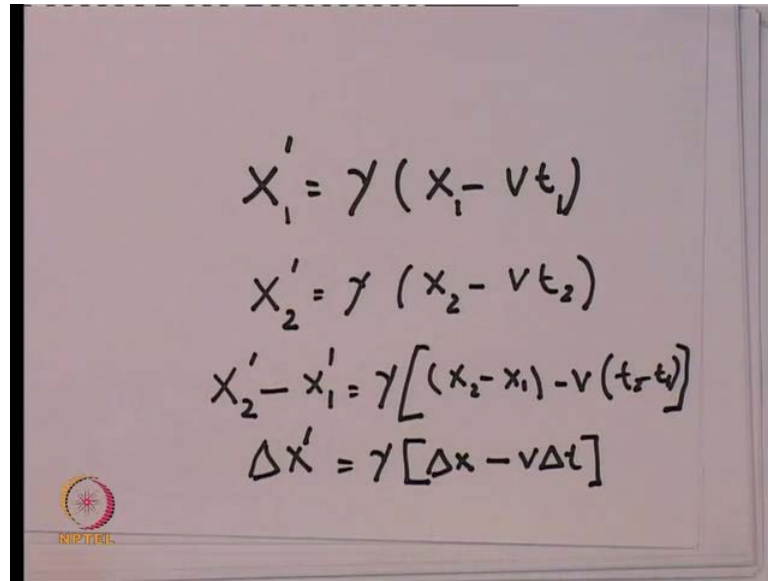 x₁' = γ (x₁ - vt₁)
x₂' = γ (x₂ - vt₂)
x₂' - x₁' = γ[(x₂ - x₁) - v(t₂ - t₁)]
Δx' = γ[Δx - vΔt]
NPTEL